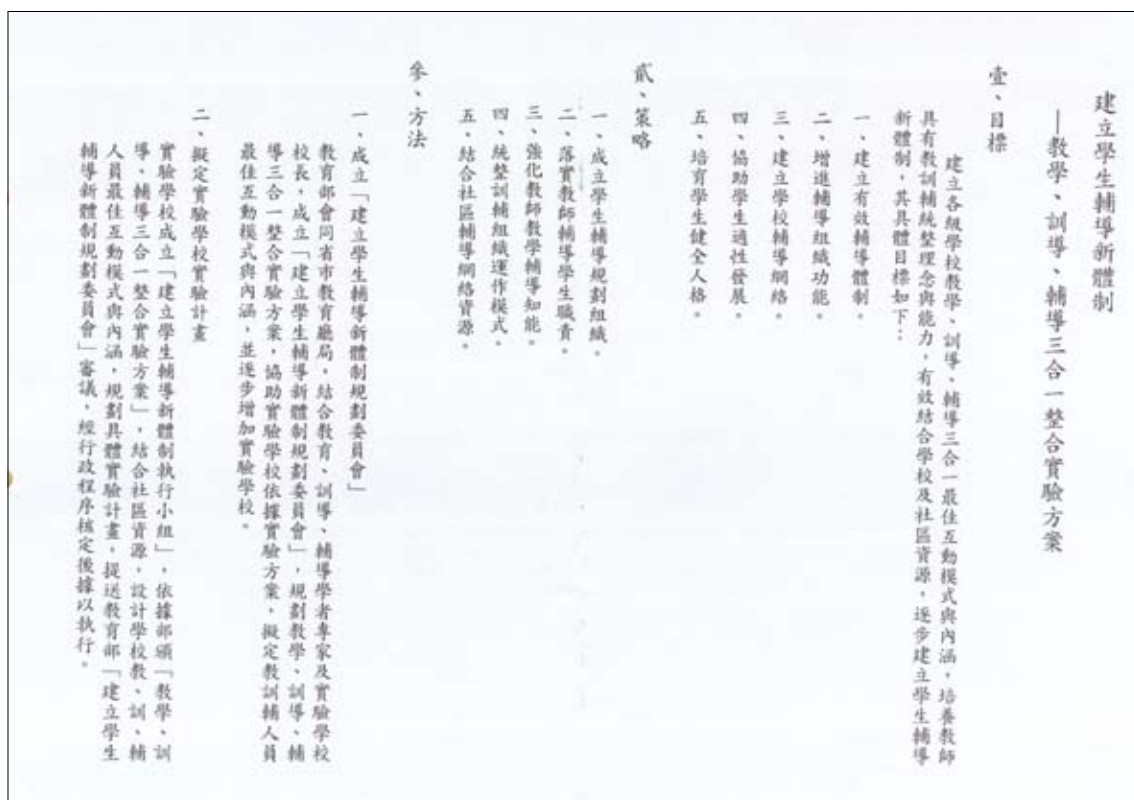 建立學生輔導新體制
—教學、訓導、輔導三合一整合實驗方案
壹、目標
建立各級學校教學、訓導、輔導三合一最佳互動模式與內涵，培養教師
具有教訓輔統整理念與能力，有效結合學校及社區資源，逐步建立學生輔導
新體制，其具體目標如下：
一、建立有效輔導體制。
二、增進輔導組織功能。
三、建立學校輔導網絡。
四、協助學生適性發展。
五、培育學生健全人格。
貳、策略
一、成立學生輔導規劃組織。
二、落實教師輔導學生職責。
三、強化教師教學輔導知能。
四、統整訓輔組織運作模式。
五、結合社區輔導網絡資源。
參、方法
一、成立「建立學生輔導新體制規劃委員會」
教育部會同省市教育廳局，結合教育、訓導、輔導學者專家及實驗學校
校長，成立「建立學生輔導新體制規劃委員會」，規劃教學、訓導、輔
導三合一整合實驗方案，協助實驗學校依據實驗方案，擬定教訓輔人員
最佳互動模式與內涵，並逐步增加實驗學校。
二、擬定實驗學校實驗計畫
實驗學校成立「建立學生輔導新體制執行小組」，依據部頒「教學、訓
導、輔導三合一整合實驗方案」，結合社區資源，設計學校教、訓、輔
人員最佳互動模式與內涵，規劃具體實驗計畫，提送教育部「建立學生
輔導新體制規劃委員會」審議，經行政程序核定後據以執行。